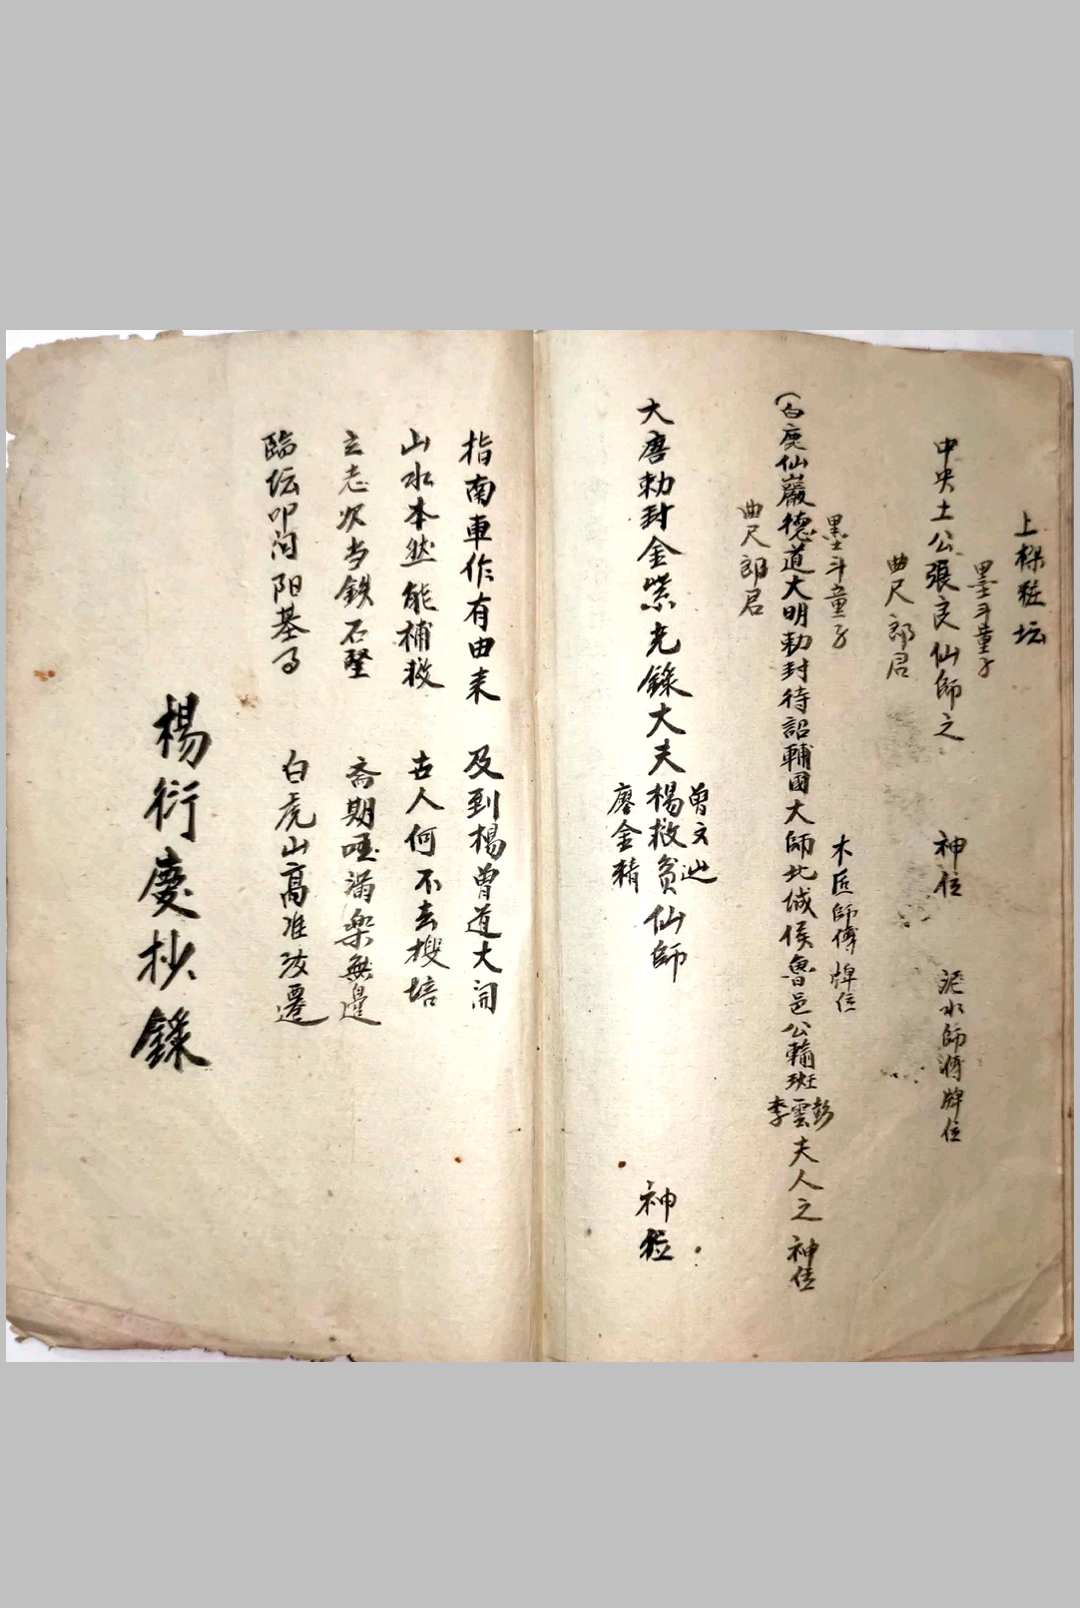 上樑粧坛
墨斗童子
中央土公張良仙師之 神位 泥水師傅牌位
曲尺郎君
墨斗童子 木匠師傅牌位
(白鹿仙巖德道大明勅封待詔輔國大師北城侯魯邑公輸班雲夫人之神位
彭
李
曲尺郎君
曾文迆
大唐勅封金紫光錄大夫楊救貧仙師 神位
廖金精
指南車作有由来 及到楊曾道大開
山水本然能補救 古人何不去搜培
立志次当鉄石堅 斋期 满樂無邊
臨坛叩问阳基了 白虎山高准汝遷
楊衍慶抄錄